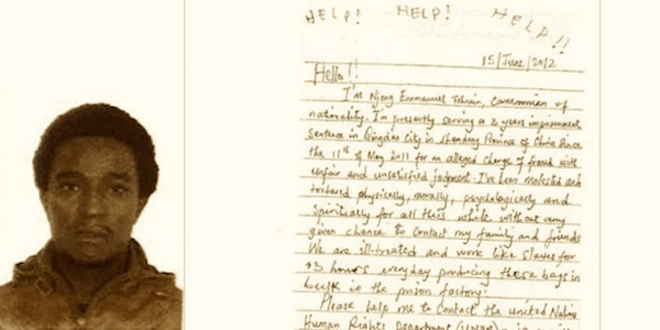 HELP! HELP! HELP!!
15/June/2012
Hello!!
I'm Njong Emmanuel Tohnain, Cameroonian of
nationality. I'm presently serving a 2 years imprisonment
sentence in Qingdao City in Shandong Province of China since
the 11th of May 2011 for an alleged charge of fraud with
unfair and unsatisfied judgment. I've been molested and
tortured physically, morally, psychologically and
spiritually for all this while without any
given chance to contact my family and friends
We are ill-treated and work like slaves for
13 hours everyday producing these bags in
bulk in the prison factory.
Please help me to contact the united
Human Rights Department